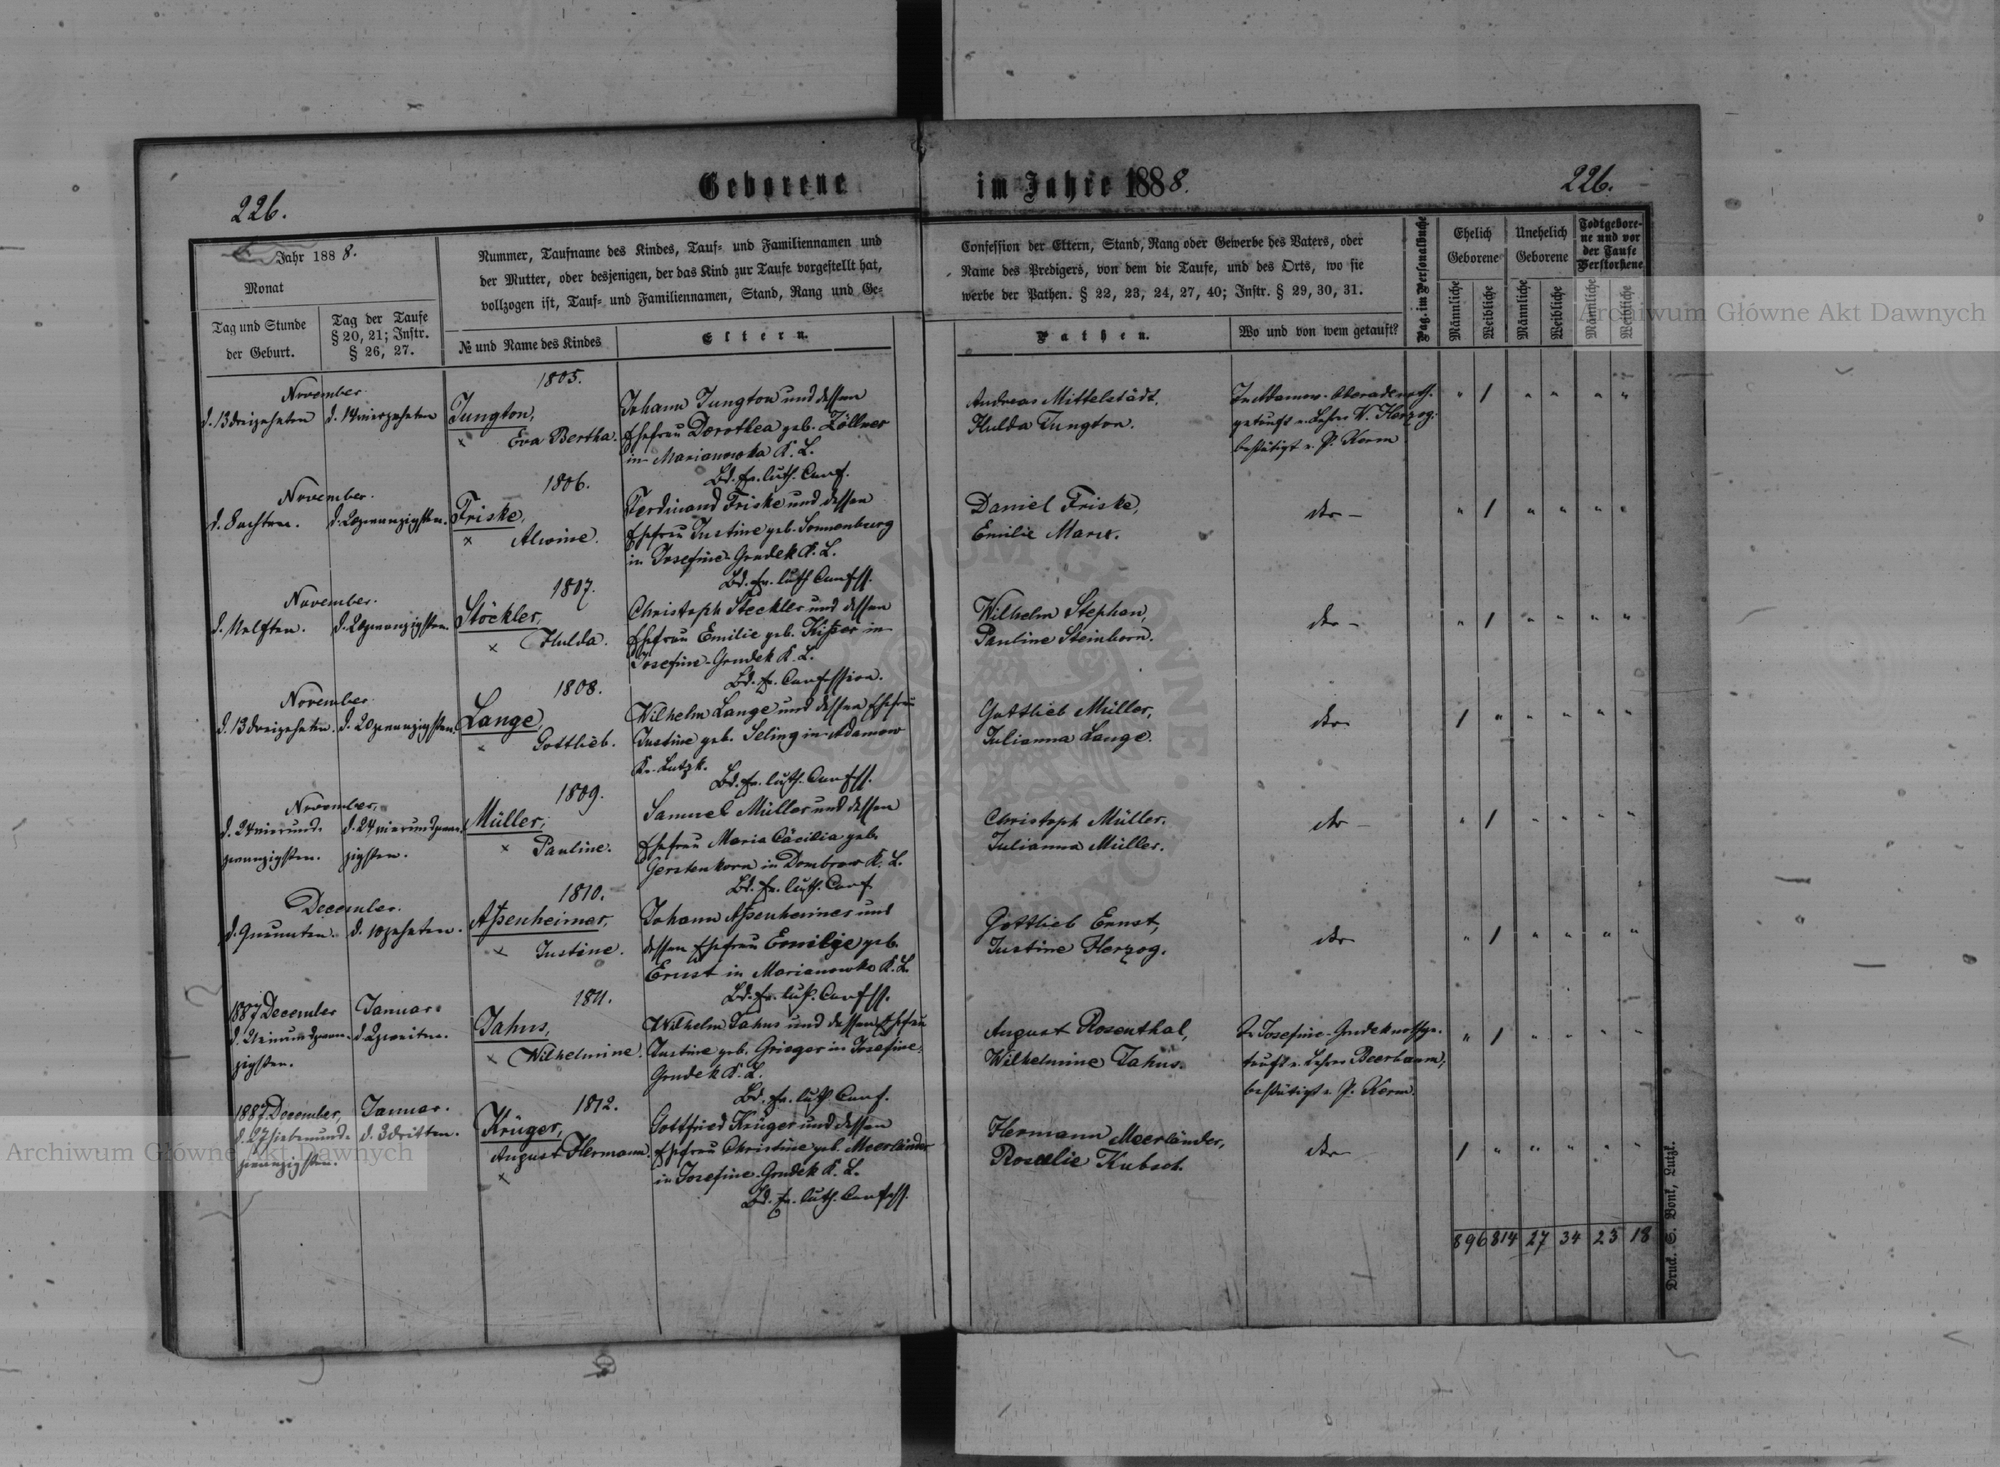 226.
Geborene
im Jahre 1888.
226.
Jahr 1888.
Monat
Tag und Stunde
der Geburt.
Tag der Taufe
§ 20, 21; Instr.
§ 26, 27.
Nummer, Taufname des Kindes, Tauf- und Familiennamen und
der Mutter, oder desjenigen, der das Kind zur Taufe vorgestellt hat,
vollzogen ist, Tauf- und Familiennamen, Stand, Rang und Ge-
№ und Name des Kindes
Eltern.
Confession der Eltern, Stand, Rang oder Gewerbe des Vaters, oder
Name des Predigers, von dem die Taufe, und des Orts, wo sie
werbe der Pathen. § 22, 23, 24, 27, 40; Instr. § 29, 30, 31.
Pathen.
Wo und von wem getauft?
Pag. im Personalbuche
Ehelich
Geborene
Unehelich
Geborene
Todtgebore-
ne und vor
der Taufe
Verstorbene
Männliche
Weibliche
Männliche
Weibliche
Männliche
Weibliche
1805.
November
d. 13 dreizehnten
d. 14 vierzehnten
Jungton,
× Eva Bertha.
Johann Jungton und dessen
Ehefrau Dorothea geb. Zöllner
in Marianowka K. L.
Bd. ev. luth. Conf.
Andreas Mittelstädt
Hulda Jungton.
getauft v. Lehrer W. Herzog.
bestätigt v. P. Kerm
" / " " " "
1806.
November.
d. 8 achten.
d. 20 zwanzigsten.
Friske,
× Alwine.
Ferdinand Friske und dessen
Ehefrau Justine geb. Sonnenburg
in Josefine-Grudek K. L.
Bd. ev. luth Confss.
Daniel Friske,
Emilie Marx.
dto –
" / " " " "
1807.
November.
d. 11 elften.
d. 20 zwanzigsten.
Stöckler,
× Hulda.
Christoph Steckler und dessen
Ehefrau Emilie geb. in
Josefine-Grudek K. L.
Bd. ev. Confession.
Wilhelm Stephan,
Pauline Steinborn.
dto –
" / " " " "
1808.
November
d. 13 dreizehnten.
d. 20 zwanzigsten.
Lange,
× Gottlieb.
Wilhelm Lange und dessen Ehefrau
Justine geb. Seling in Adamow
Kr. Lutzk.
Bd. ev. luth. Confss.
Gottlieb Müller,
Julianna Lange.
dto
/ " " " " "
1809.
November,
d. 24 vierund-
zwanzigsten.
d. 24 vierundzwan-
zigsten.
Müller,
× Pauline.
Samuel Müller und dessen
Ehefrau Maria Cäcilia geb.
Gerstenkorn in Dombrow K. L.
Bd. ev. luth. Conf
Christoph Müller.
Julianna Müller.
dto –
" / " " " "
1810.
December.
d. 9 neunten.
d. 10 zehnten.
Aßenheimer,
× Justine.
Johann Aßenheimer und
dessen Ehefrau Emilie geb.
Ernst in Marianowka K. L.
Bd. ev. luth. Confss.
Gottlieb Ernst,
Justine Herzog.
dto
" / " " " "
1811.
1887 December
zigsten.
Januar.
d. 2 zweiten.
Jahns,
× Wilhelmine.
Wilhelm Jahns und dessen Ehefrau
Justine geb. Grieger in Josefine-
Grudek K. L.
Bd. ev. luth Conf.
August Rosenthal,
Wilhelmine Jahns.
tauft v. Lehrer Beerbaum,
bestätigt v. P. Kerm.
" / " " " "
1812.
1887. December,
d. 27 siebenund-
zwanzigsten.
Januar.
d. 3 dritten.
Krüger,
August Hermann.
×
Gottfried Krüger und dessen
Ehefrau Christine geb. Meerländer
in Josefine-Grudek K. L.
Bd. ev. luth. Confess.
Hermann Meerländer,
Rosalie Kubsch.
dto
/ " " " " "
896 814 27 34 23 18
Archiwum Główne Akt Dawnych
Archiwum Główne Akt Dawnych